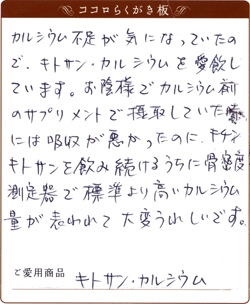 ココロらくがき板
カルシウム不足が気になっていたの
で、キトサン・カルシウムを愛飲し
ています。お陰様でカルシウム剤
のサプリメントで摂取していた時
には吸収が悪かったのに、キチン
キトサンを飲み続けるうちに骨密度
測定器で標準より高いカルシウム
量が表われて大変うれしいです。
ご愛用商品
キトサン・カルシウム